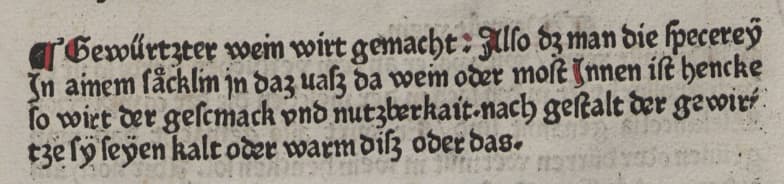 ¶ Gewürtzter wein wirt gemacht : Also dz man die specereÿ
Jn ainem såcklin jn daz uasz da wein oder most Jnnen ist hencke
so wirt der gescmack vnd nutzberkait. nach gestalt der gewir⸗
tze sÿ seÿen kalt oder warm disz oder das.